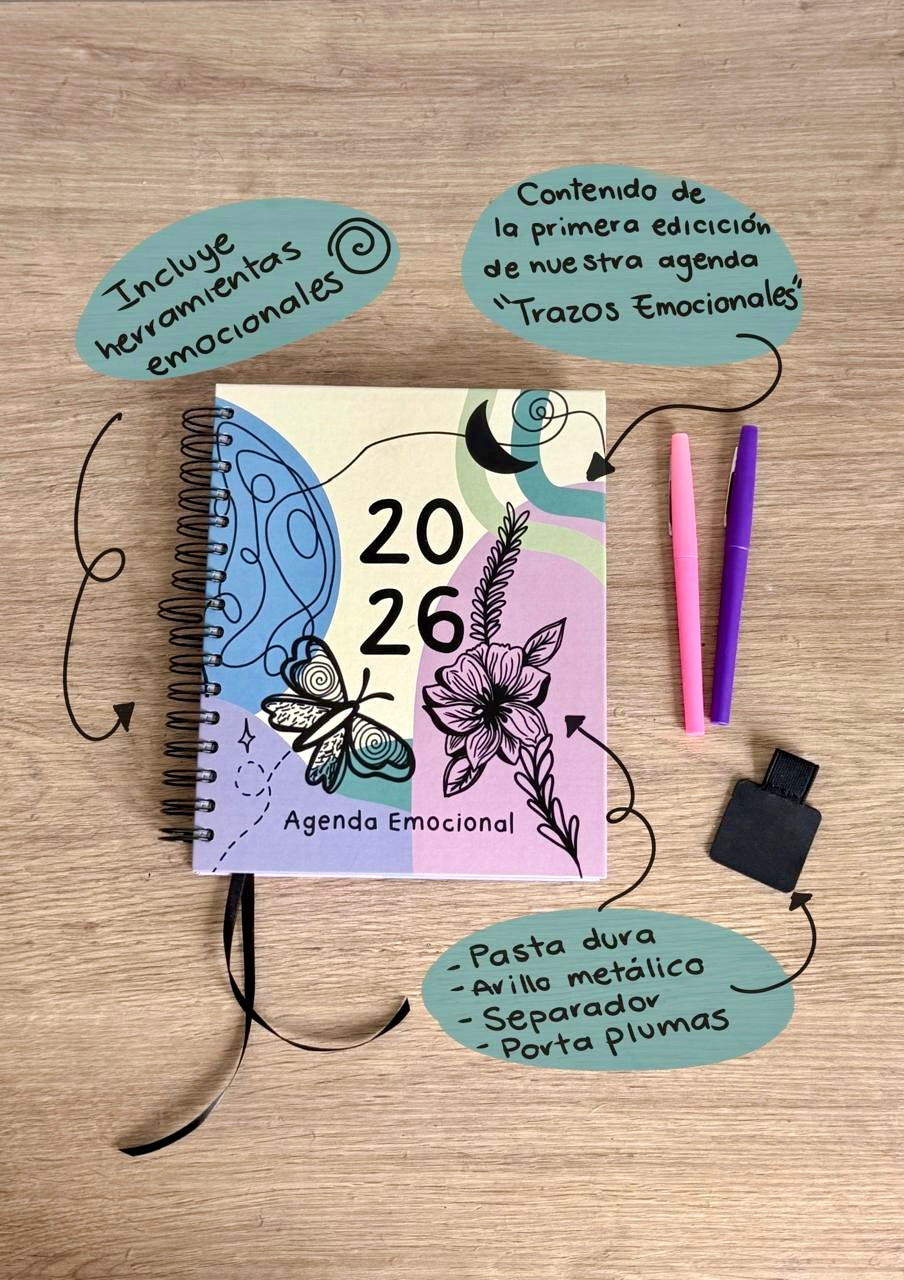 Incluye
herramientas
emocionales
Contenido de
la primera edicición
de nuestra agenda
"Trazos Emocionales"
20
26
Agenda Emocional
- Pasta dura
- Arillo metálico
- Separador
- Porta plumas